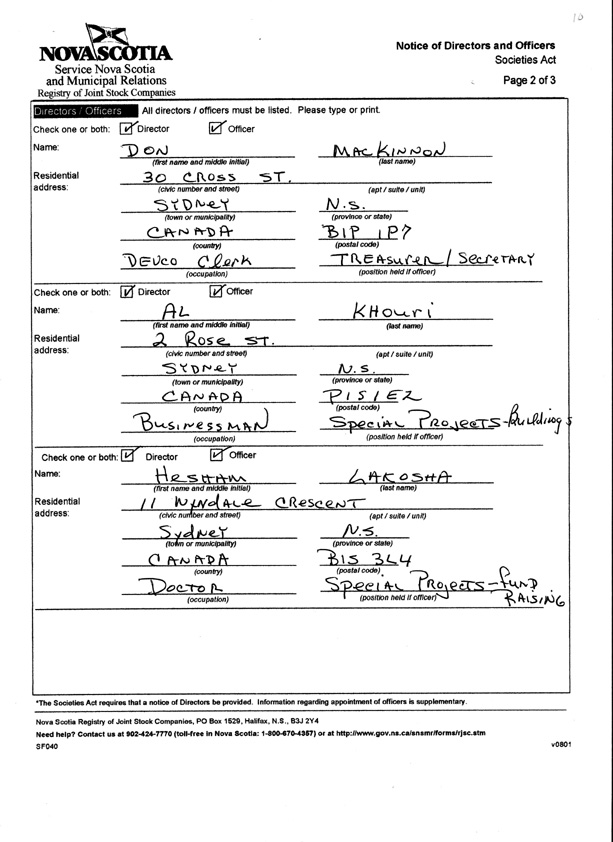 10
NOVA SCOTIA
Service Nova Scotia
and Municipal Relations
Registry of Joint Stock Companies
Notice of Directors and Officers
Societies Act
Page 2 of 3
Directors / Officers All directors / officers must be listed. Please type or print.
Check one or both: Director Officer
Name: DON MACKINNON
(first name and middle initial) (last name)
Residential address: 30 CROSS ST.
(civic number and street) (apt / suite / unit)
SYDNEY N.S.
(town or municipality) (province or state)
CANADA B1P 1P7
(country) (postal code)
DEVCO Clerk TREASURER / SECRETARY
(occupation) (position held if officer)
Check one or both: Director Officer
Name: AL KHOURI
(first name and middle initial) (last name)
Residential address: 2 ROSE ST.
(civic number and street) (apt / suite / unit)
SYDNEY N.S.
(town or municipality) (province or state)
CANADA P1S1E2
(country) (postal code)
BUSINESSMAN SPECIAL PROJECTS-Buildings
(occupation) (position held if officer)
Check one or both: Director Officer
Name: HESHAM LAKOSHA
(first name and middle initial) (last name)
Residential address: 11 WYNDALE CRESCENT
(civic number and street) (apt / suite / unit)
Sydney N.S.
(town or municipality) (province or state)
CANADA B1S 3L4
(country) (postal code)
DOCTOR SPECIAL PROJECTS-FUND
RAISING
(occupation) (position held if officer)
*The Societies Act requires that a notice of Directors be provided. Information regarding appointment of officers is supplementary.
Nova Scotia Registry of Joint Stock Companies, PO Box 1529, Halifax, N.S., B3J 2Y4
Need help? Contact us at 902-424-7770 (toll-free in Nova Scotia: 1-800-670-4357) or at http://www.gov.ns.ca/snsmr/forms/rjsc.stm
SF040 v0801